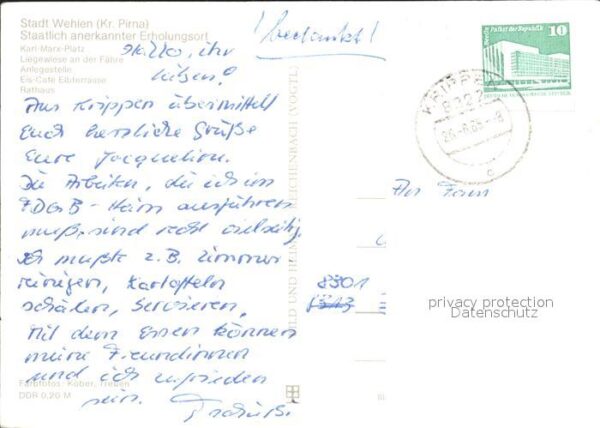 Stadt Wehlen (Kr. Pirna)
Staatlich anerkannter Erholungsort
Karl-Marx-Platz
Liegewiese an der Fähre
Anlegestelle
Eis-Cafe Elbterrasse
Rathaus
! bedankt!
Hallo, ihr
Lieben!
Aus Krippen übermittelt
Euch herzliche Grüße
Eure Jacquelion.
Die Arbeiten, die ich im
FDGB-Heim ausführen
muß, sind recht vielseitig.
Ich mußte z.B. Zimmer
reinigen, Kartoffeln
schälen, Servieren,
Mit dem Essen können
meine Freundinnen
und ich zufrieden
sein. Tschüß.
Farbfotos: Kober, Treuen
DDR 0,20 M
BILD UND HEIM REICHENBACH (VOGTL)
Berlin Palast der Republik
10
DEUTSCHE DEMOKRATISCHE REPUBLIK
KRIPPEN
8322
c
An Fam
8301
privacy protection
Datenschutz